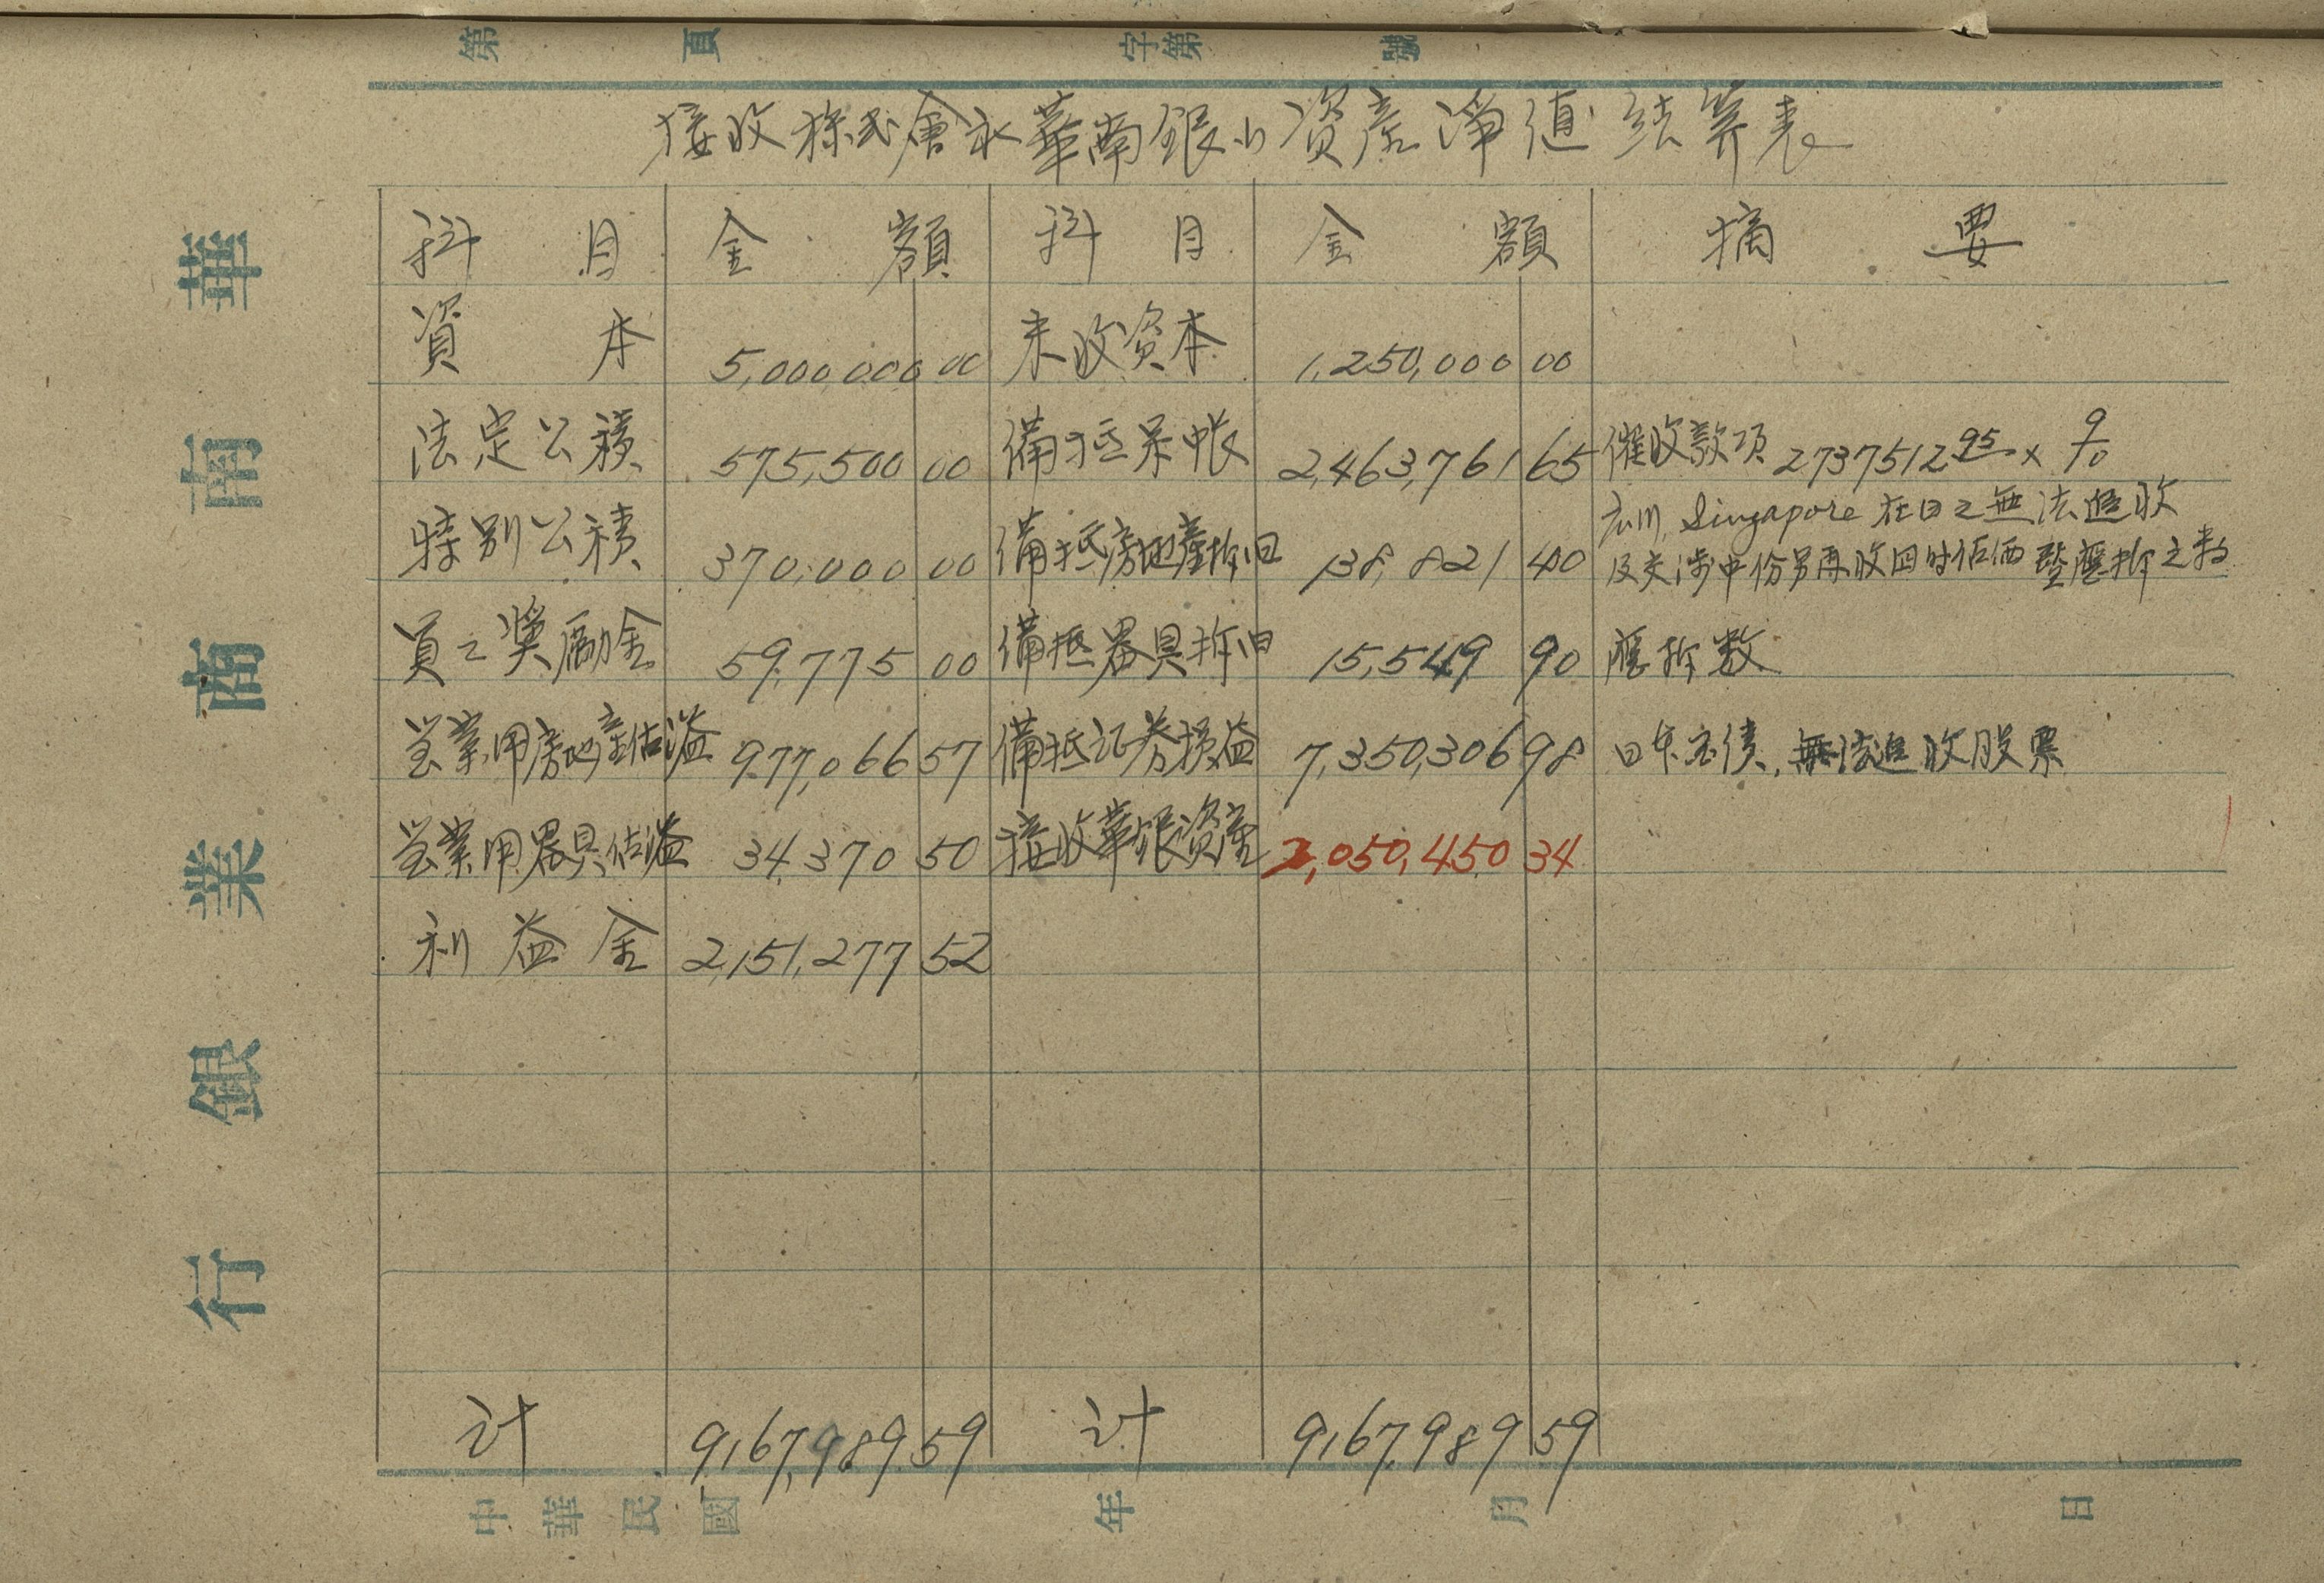 第 頁 字第 號
接收株式會社華南銀行資產淨值結算表
科目 金額 科目 金額 摘要
資本 5,000,000 00 未收資本 1,250,000 00
法定公積 575,500 00 備抵呆帳 2,463,761 65 催收款項 2737512 95 × 9/10
特別公積 370,000 00 備抵房地產折旧 138,821 40 広川, Singapore 在日之無法追收
及交涉中份另再收回时估価 暨應折之数
員工奬励金 59,775 00 備抵器具折旧 15,549 90 應折数
営業用房地産估溢 977,066 57 備抵证券損益 7,350,306 98 日本公债, 無法追收股票
営業用器具估溢 34,370 50 接收華銀資産 2,050,450 34
利益金 2,151,277 52
计 9,167,989 59 计 9,167,989 59
華南商業銀行
中華民國 年 月 日